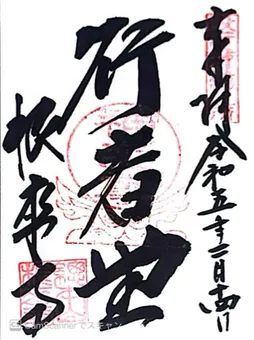 奉拝 令和五年二月十四日
行者堂
根来寺
CamScannerでスキャン